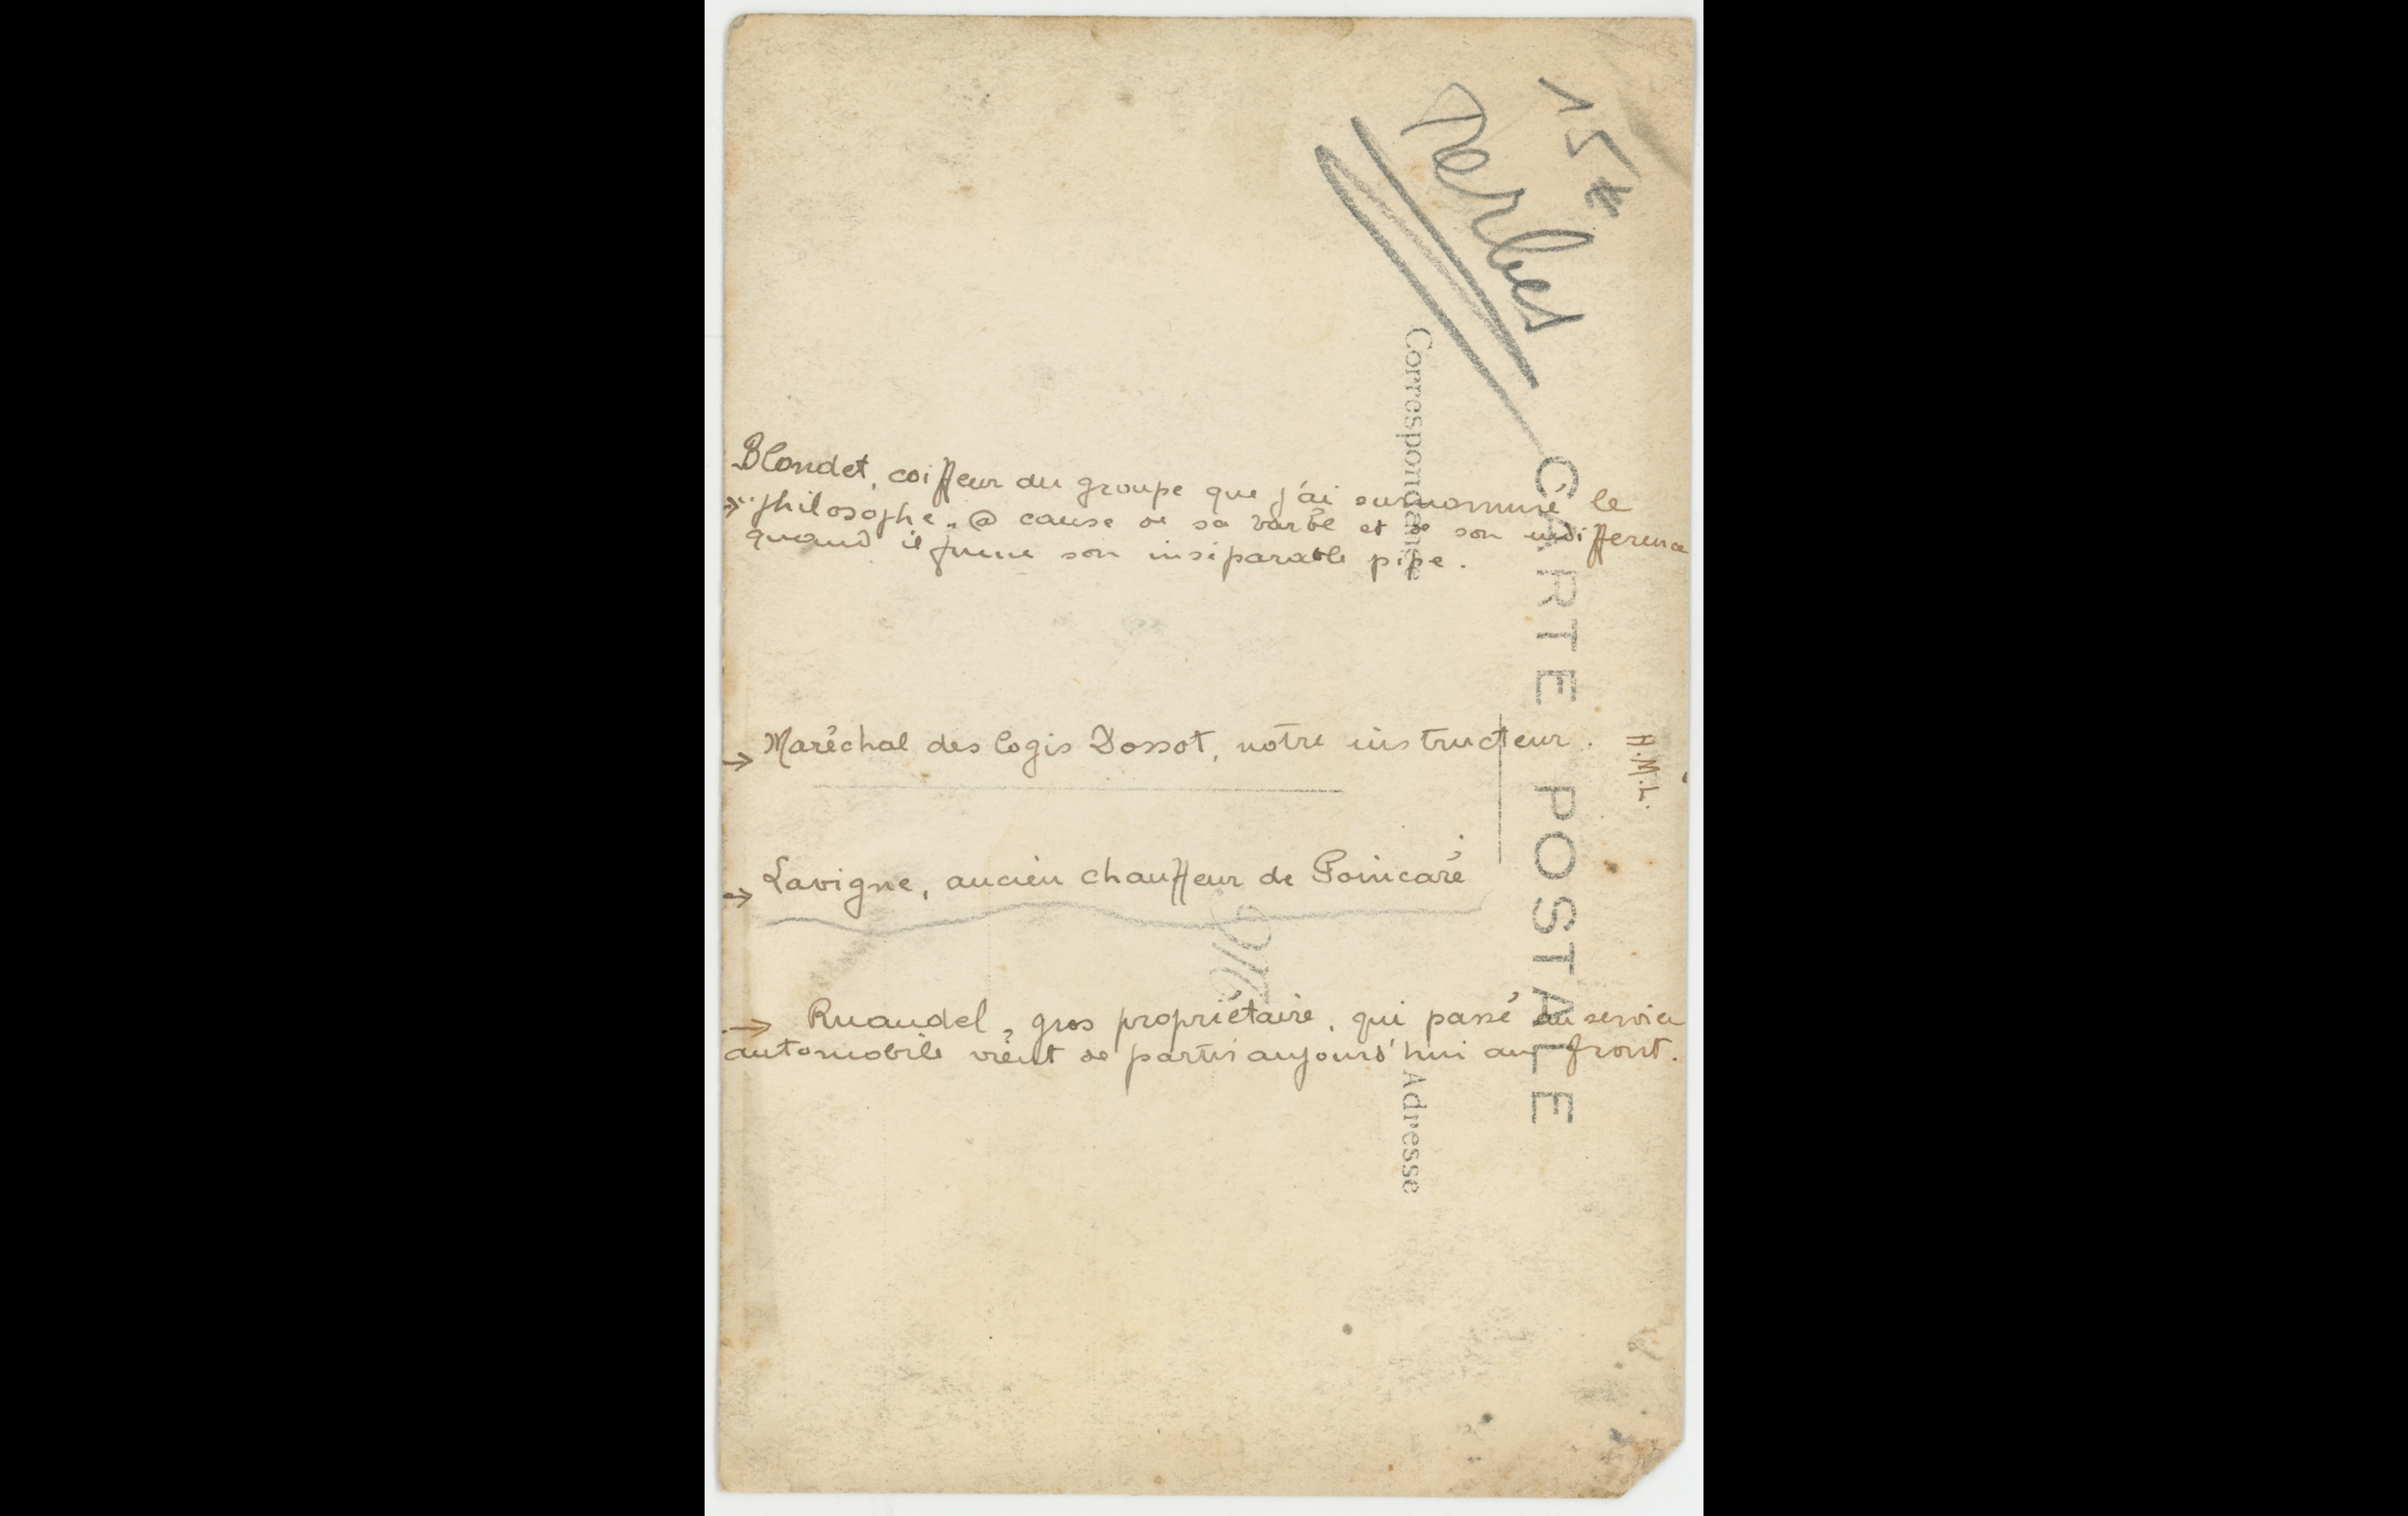 Blondet, coiffeur du groupe que j'ai surnommé le
→ "philosophe" @ cause de sa barbe et de son indifference
quand il fume son inséparable pipe.
→ Maréchal des logis Dossot, notre instructeur.
→ Lavigne, ancien chauffeur de Poincaré
→ Ruaudel, gros propriétaire, qui passé au service
automobile vient de partir aujourd'hui au front.
CARTE POSTALE
Correspondance
Adresse
M
H.M.L.
15